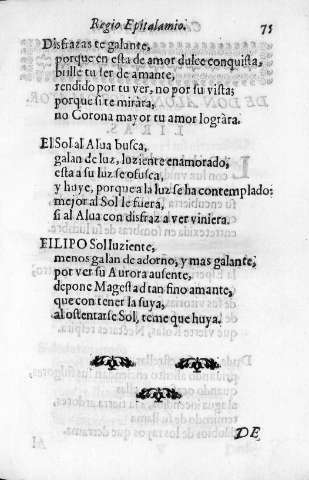 Regio Epitalamio. 75
Disfrazas te galante,
porque en esta de amor dulce conquista,
brille tu ser de amante,
rendido por tu ver, no por su vista;
porque si te miràra,
no Corona mayor tu amor logràra.
El Sol al Alua busca,
galan de luz, luziente enamorado,
esta a su luz se ofusca,
y huye, porque a la luz se ha contemplado:
mejor al Sol le fuera,
si al Alua con disfraz a ver viniera.
FILIPO Sol luziente,
menos galan de adorno, y mas galante,
por ver su Aurora ausente,
depone Magestad tan fino amante,
que con tener la suya,
al ostentarse Sol, teme que huya.
DE